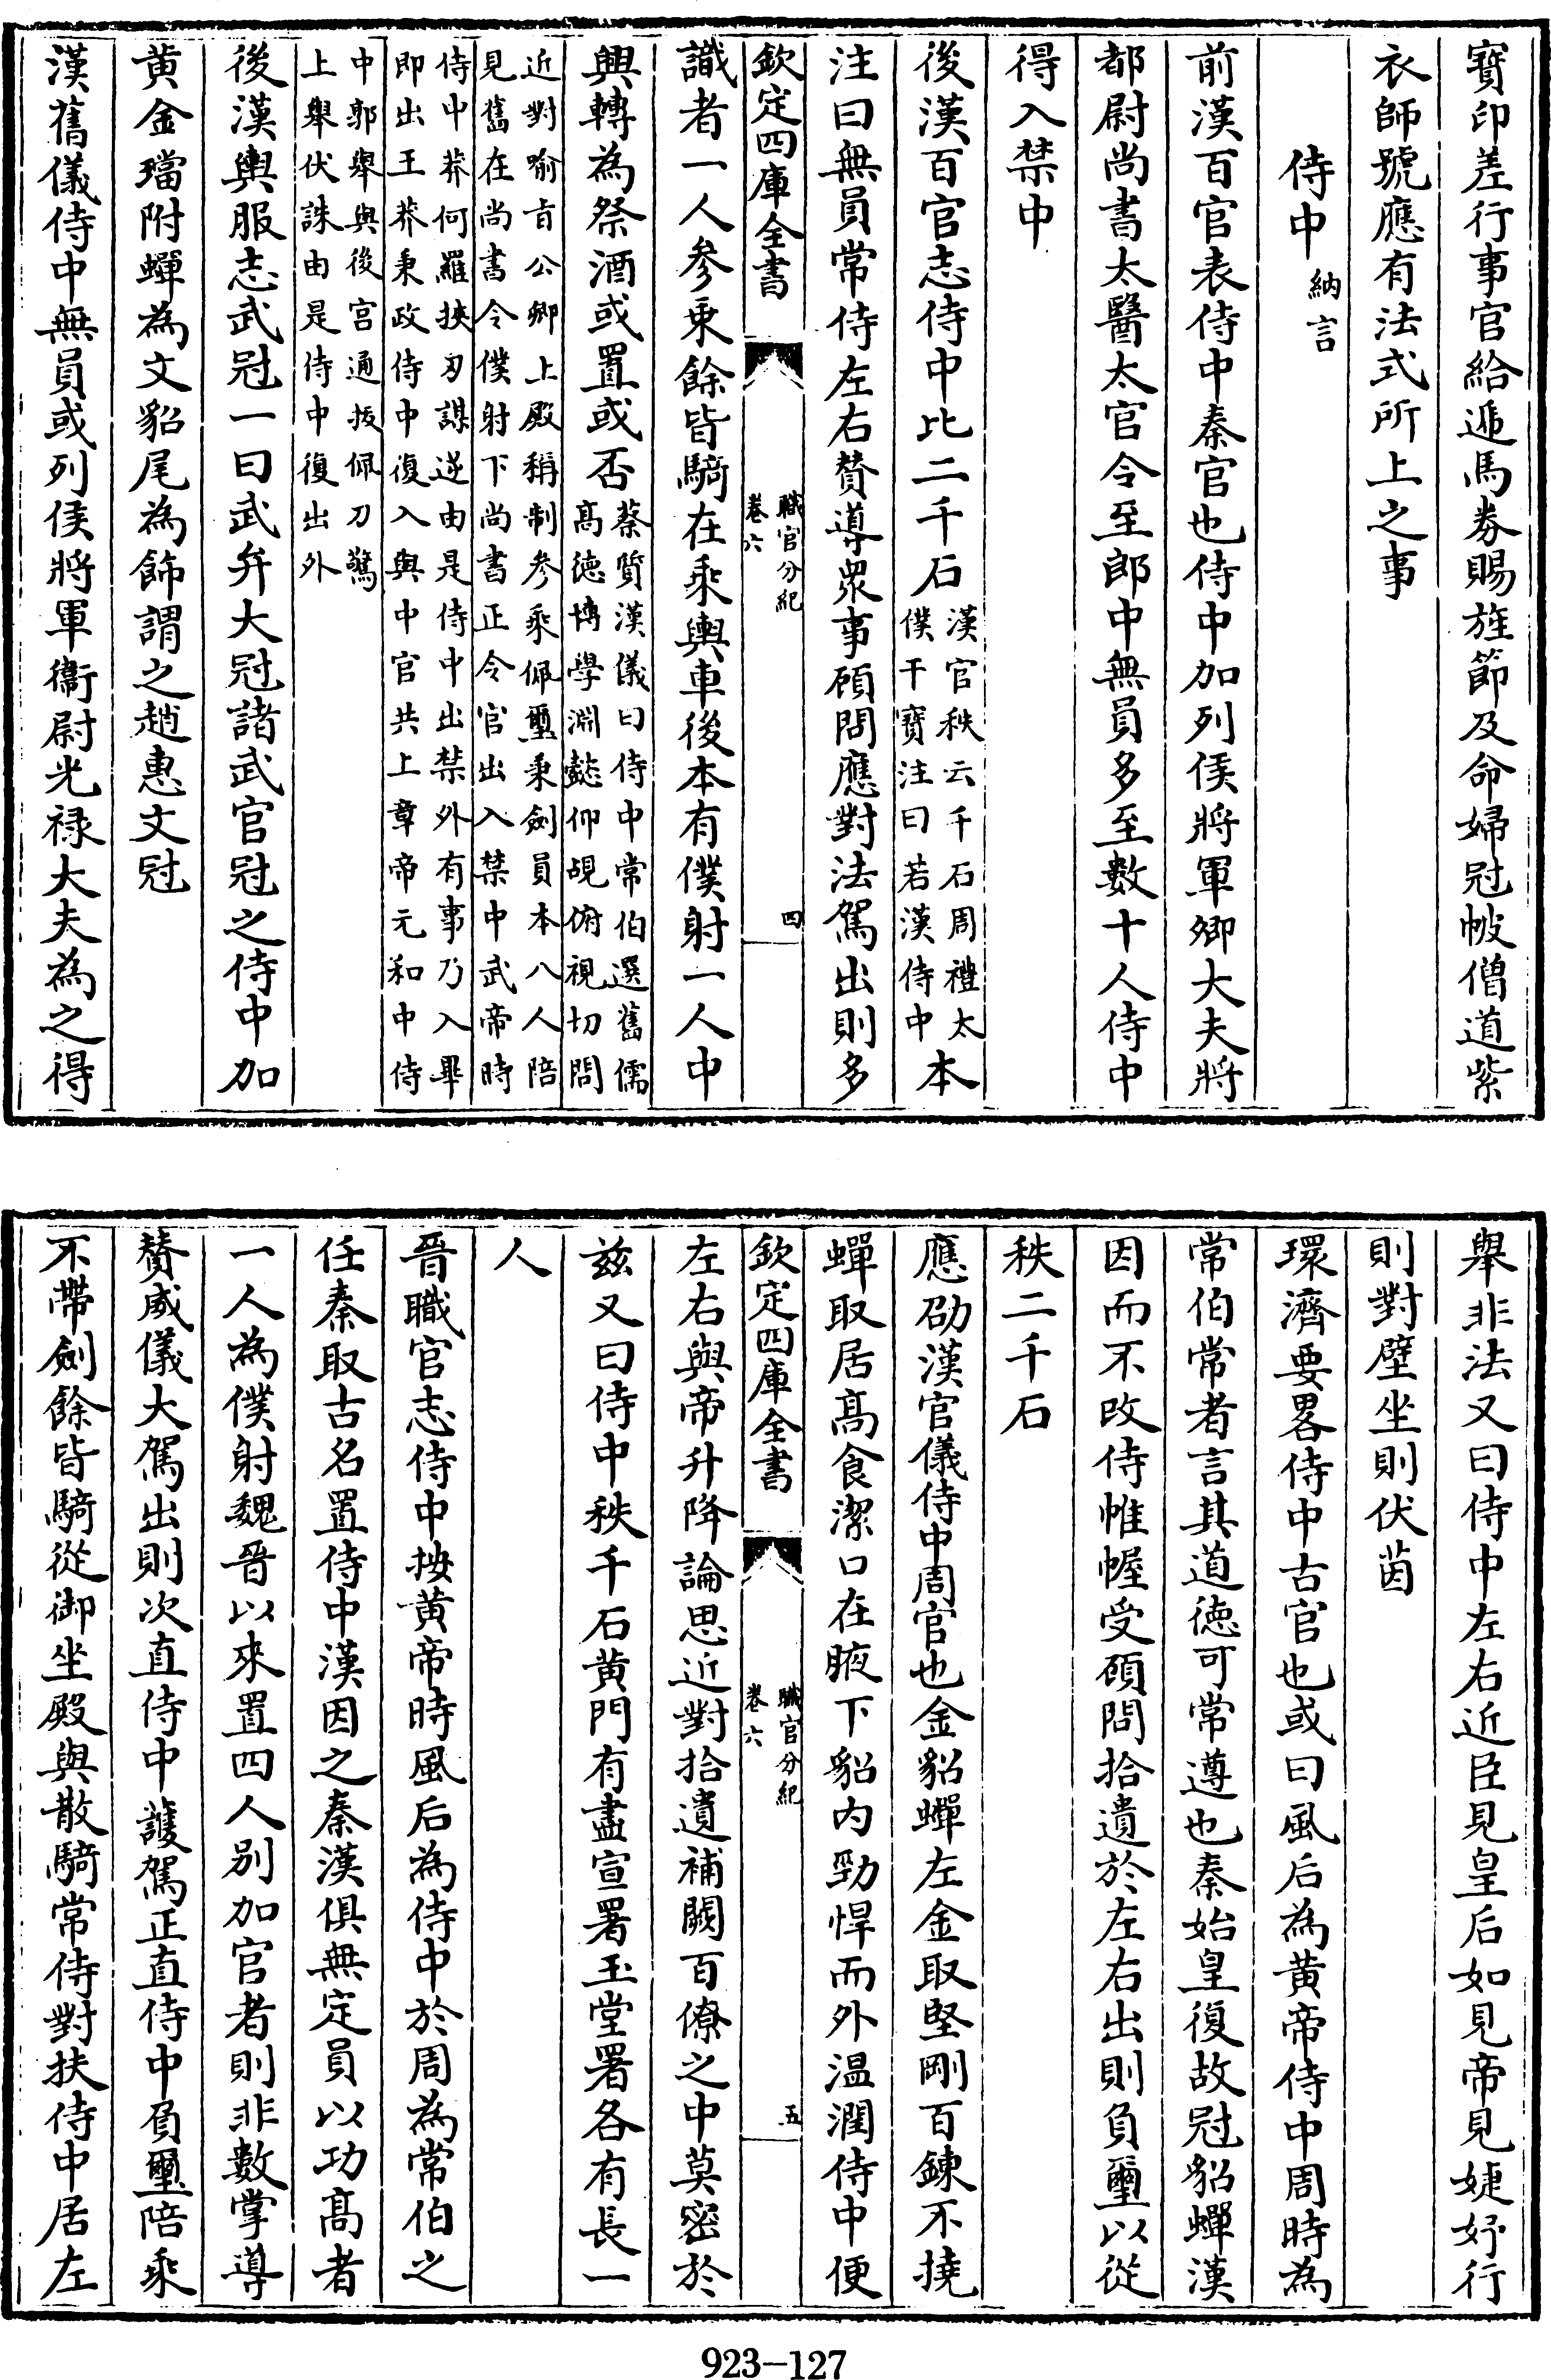 寶印差行事官給遞馬劵賜旌節及命婦冠帔僧道紫
衣師號應有法式所上之事
侍中納言
前漢百官表侍中秦官也侍中加列侯將軍卿大夫將
都尉尚書太醫太官令至郎中無員多至數十人侍中
得入禁中
後漢百官志侍中比二千石漢官秩云千石周禮太僕干寶注曰若漢侍中本
注曰無員常侍左右賛導衆事顧問應對法駕出則多
欽定四庫全書
職官分紀
卷六
四
識者一人參乗餘皆騎在乘輿車後本有僕射一人中
興轉為祭酒或置或否蔡質漢儀曰侍中常伯選舊儒髙徳博學淵懿仰覩俯視切問
近對喻㫖公卿上殿稱制參乘佩璽秉劍員本八人陪
見舊在尚書令僕射下尚書正令官出入禁中武帝時
侍中莽何羅挾刃謀逆由是侍中出禁外有事乃入畢
即出王莽秉政侍中復入與中官共上章帝元和中侍
中郭舉與後宫通拔佩刀驚
上舉伏誅由是侍中復出外
後漢輿服志武冠一曰武弁大冠諸武官冠之侍中加
黄金璫附蟬為文貂尾為飾謂之趙惠文冠
漢舊儀侍中無員或列侯將軍衞尉光禄大夫為之得
舉非法又曰侍中左右近臣見皇后如見帝見婕妤行
則對壁坐則伏茵
環濟要畧侍中古官也或曰風后為黄帝侍中周時為
常伯常者言其道徳可常遵也秦始皇復故冠貂蟬漢
因而不改侍帷幄受顧問拾遺於左右出則負璽以從
秩二千石
應劭漢官儀侍中周官也金貂蟬左金取堅剛百鍊不撓
蟬取居髙食潔口在腋下貂内勁悍而外温潤侍中便
欽定四庫全書
職官分紀
卷六
五
左右與帝升降論思近對拾遺補闕百僚之中莫密於
兹又曰侍中秩千石黄門有畫宣署玉堂署各有長一
人
晉職官志侍中按黄帝時風后為侍中於周為常伯之
任秦取古名置侍中漢因之秦漢俱無定員以功髙者
一人為僕射魏晉以來置四人别加官者則非數掌導
賛威儀大駕出則次直侍中護駕正直侍中負璽陪乘
不帶劍餘皆騎從御坐殿與散騎常侍對扶侍中居左
923-127